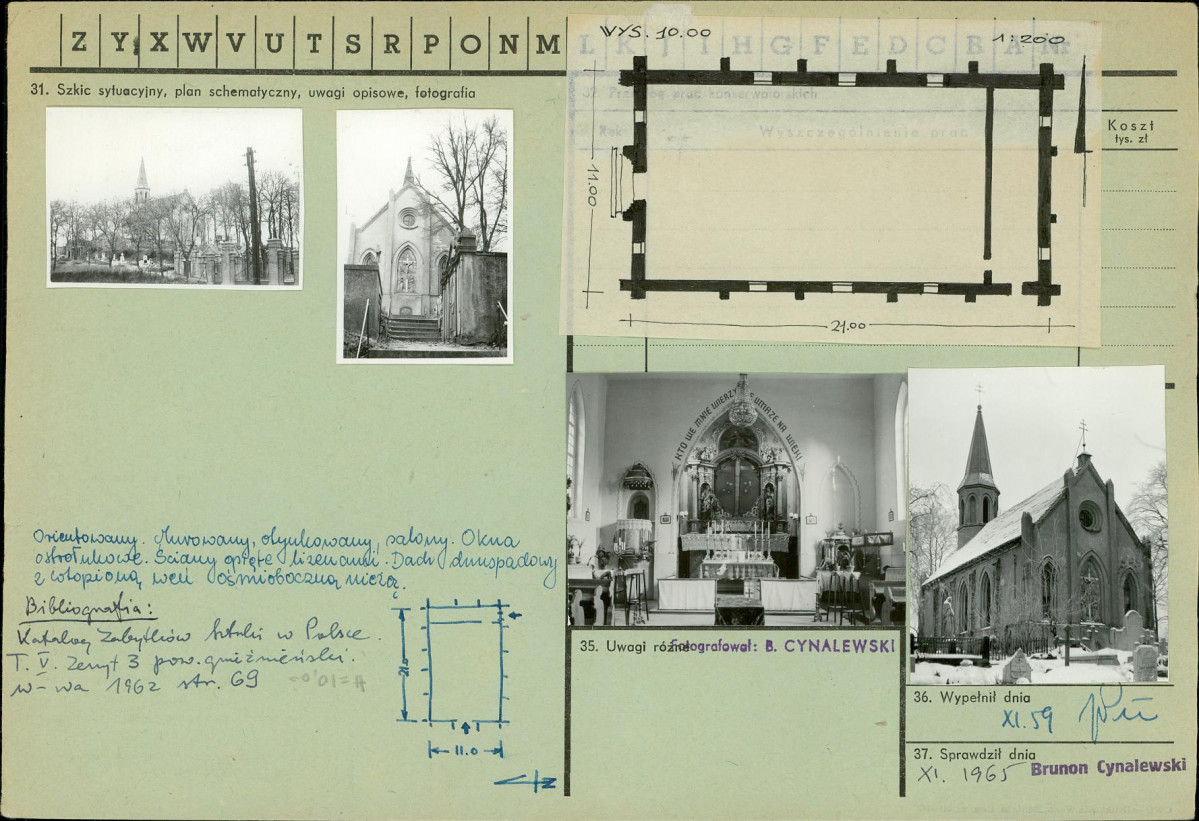 Z Y X W V U T S R P O N M L K J I H G F E D C B A Nr
31. Szkic sytuacyjny, plan schematyczny, uwagi opisowe, fotografia
WYS. 10.00
1:200
32. Przebieg prac konserwatorskich
Rok
Wyszczególnienie prac
Koszt
tys. zł
11.00
21.00
KTO WE MNIE WIERZY NIE UMRZE NA WIEKI
Orientowany. Murowany, otynkowany, salowy. Okna
ostrołukowe. Ściany opięte lizenami. Dach dwuspadowy
z wtopioną weń ośmioboczną wieżą.
Bibliografia:
Katalog Zabytków Sztuki w Polsce.
T. V. Zeszyt 3 pow. gnieźnieński.
W-wa 1962 str. 69
H=10,00
21.0
11.0
N
35. Uwagi różne
Fotografował: B. CYNALEWSKI
36. Wypełnił dnia
XI.59
37. Sprawdził dnia
XI. 1965
Brunon Cynalewski